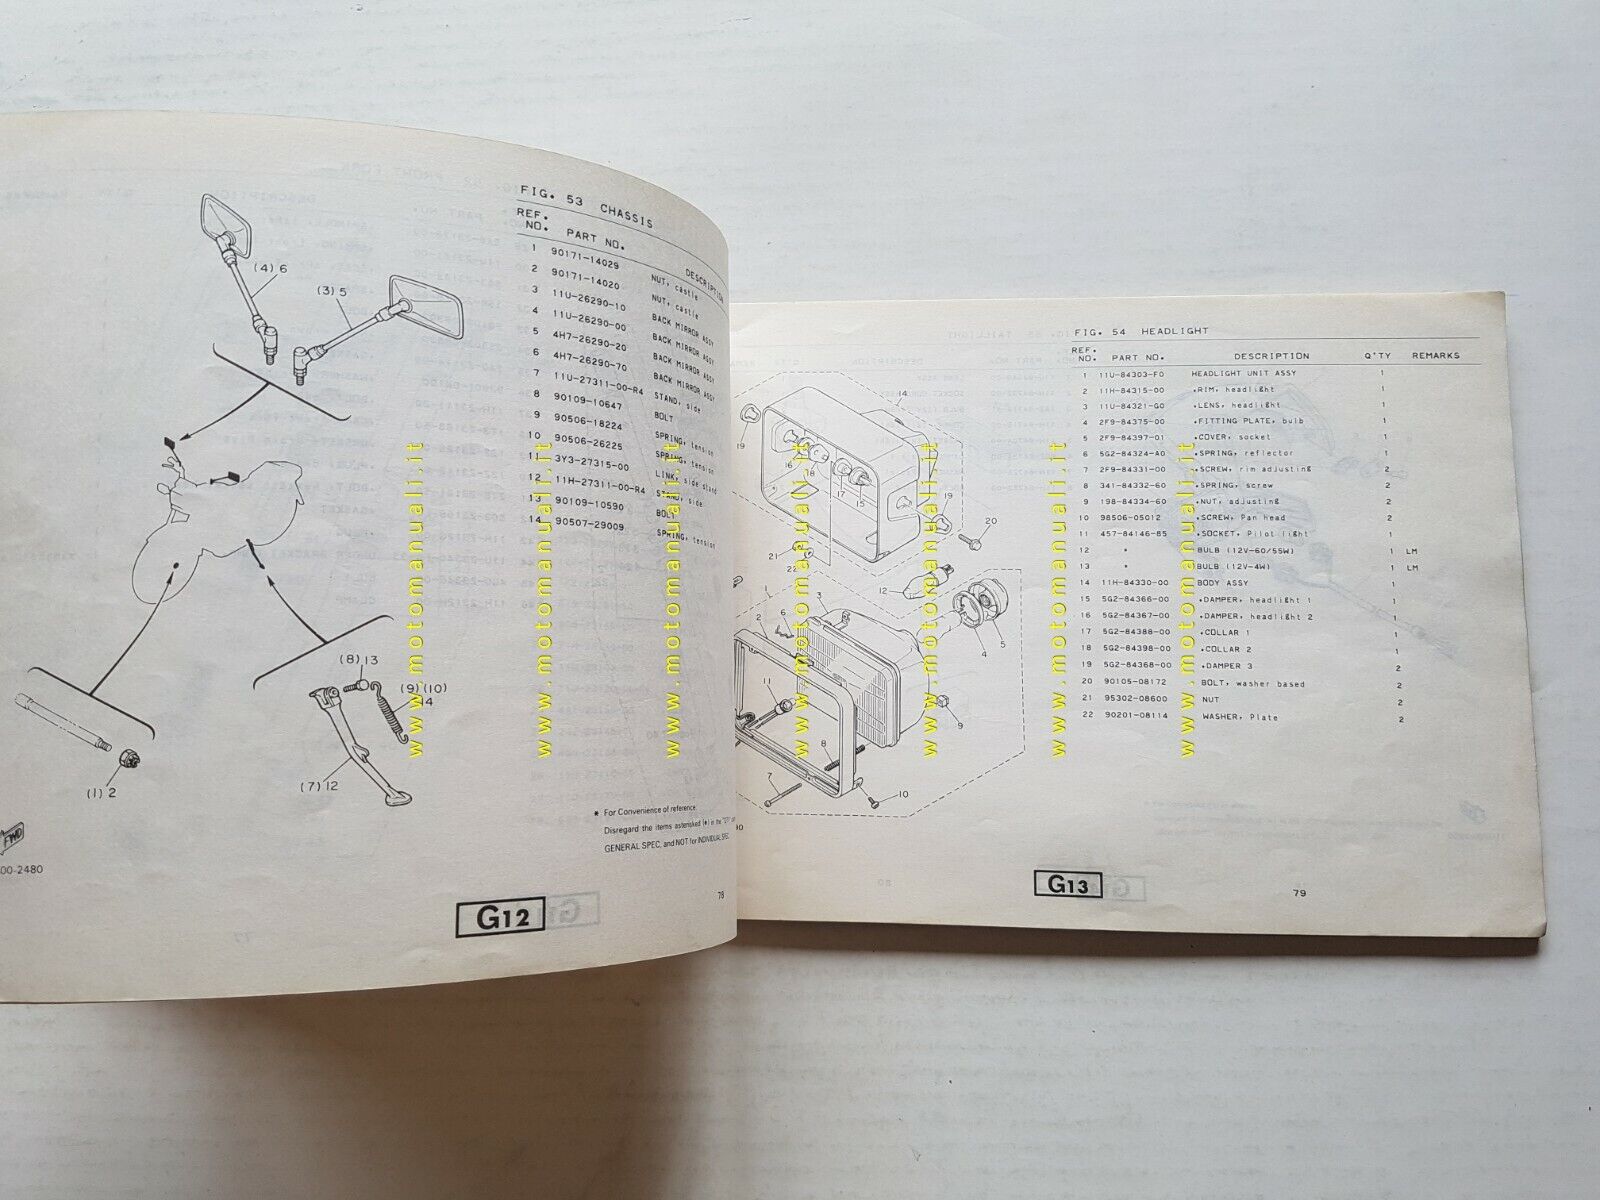 FIG. 53 CHASSIS
REF. NO. PART NO. DESCRIPTION
1 90171-14029 NUT, castle
2 90171-14020 NUT, castle
3 11U-26290-10 BACK MIRROR ASSY
4 11U-26290-00 BACK MIRROR ASSY
5 4H7-26290-20 BACK MIRROR ASSY
6 4H7-26290-70 BACK MIRROR ASSY
7 11U-27311-00-R4 STAND, side
8 90109-10647 BOLT
9 90506-18224 SPRING, tension
10 90506-26225 SPRING, tension
11 3Y3-27315-00 LINK, side stand
12 11H-27311-00-R4 STAND, side
13 90109-10590 BOLT
14 90507-29009 SPRING, tension
(4) 6
(3) 5
(8) 13
(9) (10)
14
(7) 12
(1) 2
FWD
00-2480
* For Convenience of reference:
Disregard the items asterisked (*) in the "Q'TY"
GENERAL SPEC, and NOT for INDIVIDUAL SPEC.
G12
78
FIG. 54 HEADLIGHT
REF. NO. PART NO. DESCRIPTION Q'TY REMARKS
1 11U-84303-F0 HEADLIGHT UNIT ASSY 1
2 11H-84315-00 .RIM, headlight 1
3 11U-84321-G0 .LENS, headlight 1
4 2F9-84375-00 .FITTING PLATE, bulb 1
5 2F9-84397-01 .COVER, socket 1
6 5G2-84324-A0 .SPRING, reflector 1
7 2F9-84331-00 .SCREW, rim adjusting 2
8 341-84332-60 .SPRING, screw 2
9 198-84334-60 .NUT, adjusting 2
10 98506-05012 .SCREW, Pan head 2
11 457-84146-85 .SOCKET, Pilot light 1
12 * BULB (12V-60/55W) 1 LM
13 * BULB (12V-4W) 1 LM
14 11H-84330-00 BODY ASSY 1
15 5G2-84366-00 .DAMPER, headlight 1 1
16 5G2-84367-00 .DAMPER, headlight 2 1
17 5G2-84388-00 .COLLAR 1 1
18 5G2-84398-00 .COLLAR 2 1
19 5G2-84368-00 .DAMPER 3 2
20 90105-08172 BOLT, washer based 2
21 95302-08600 NUT 2
22 90201-08114 WASHER, Plate 2
14
19
16
18
17
15
19
20
21
22
12
1
2
3
6
4
5
11
9
8
7
10
90
G13
79
www.motomanuali.it
www.motomanuali.it
www.motomanuali.it
www.motomanuali.it
www.motomanuali.it
www.motomanuali.it
www.motomanuali.it